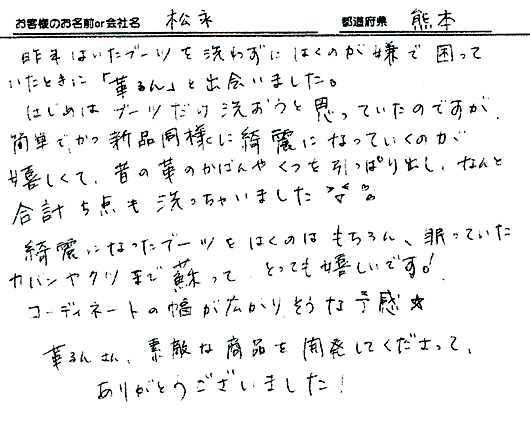 お客様のお名前or会社名 松永 都道府県 熊本
昨年はいたブーツを洗わずにはくのが嫌で困って
いたときに「革るん」と出会いました。
はじめはブーツだけ洗おうと思っていたのですが、
簡単でかつ新品同様に綺麗になっていくのが
嬉しくて、昔の革のかばんやくつを引っぱり出し、なんと
合計5点も洗っちゃいました
綺麗になったブーツをはくのはもちろん、眠っていた
カバンやクツまで蘇って、とっても嬉しいです!
コーディネートの幅が広がりそうな予感☆
革るんさん、素敵な商品を開発してくださって、
ありがとうございました!